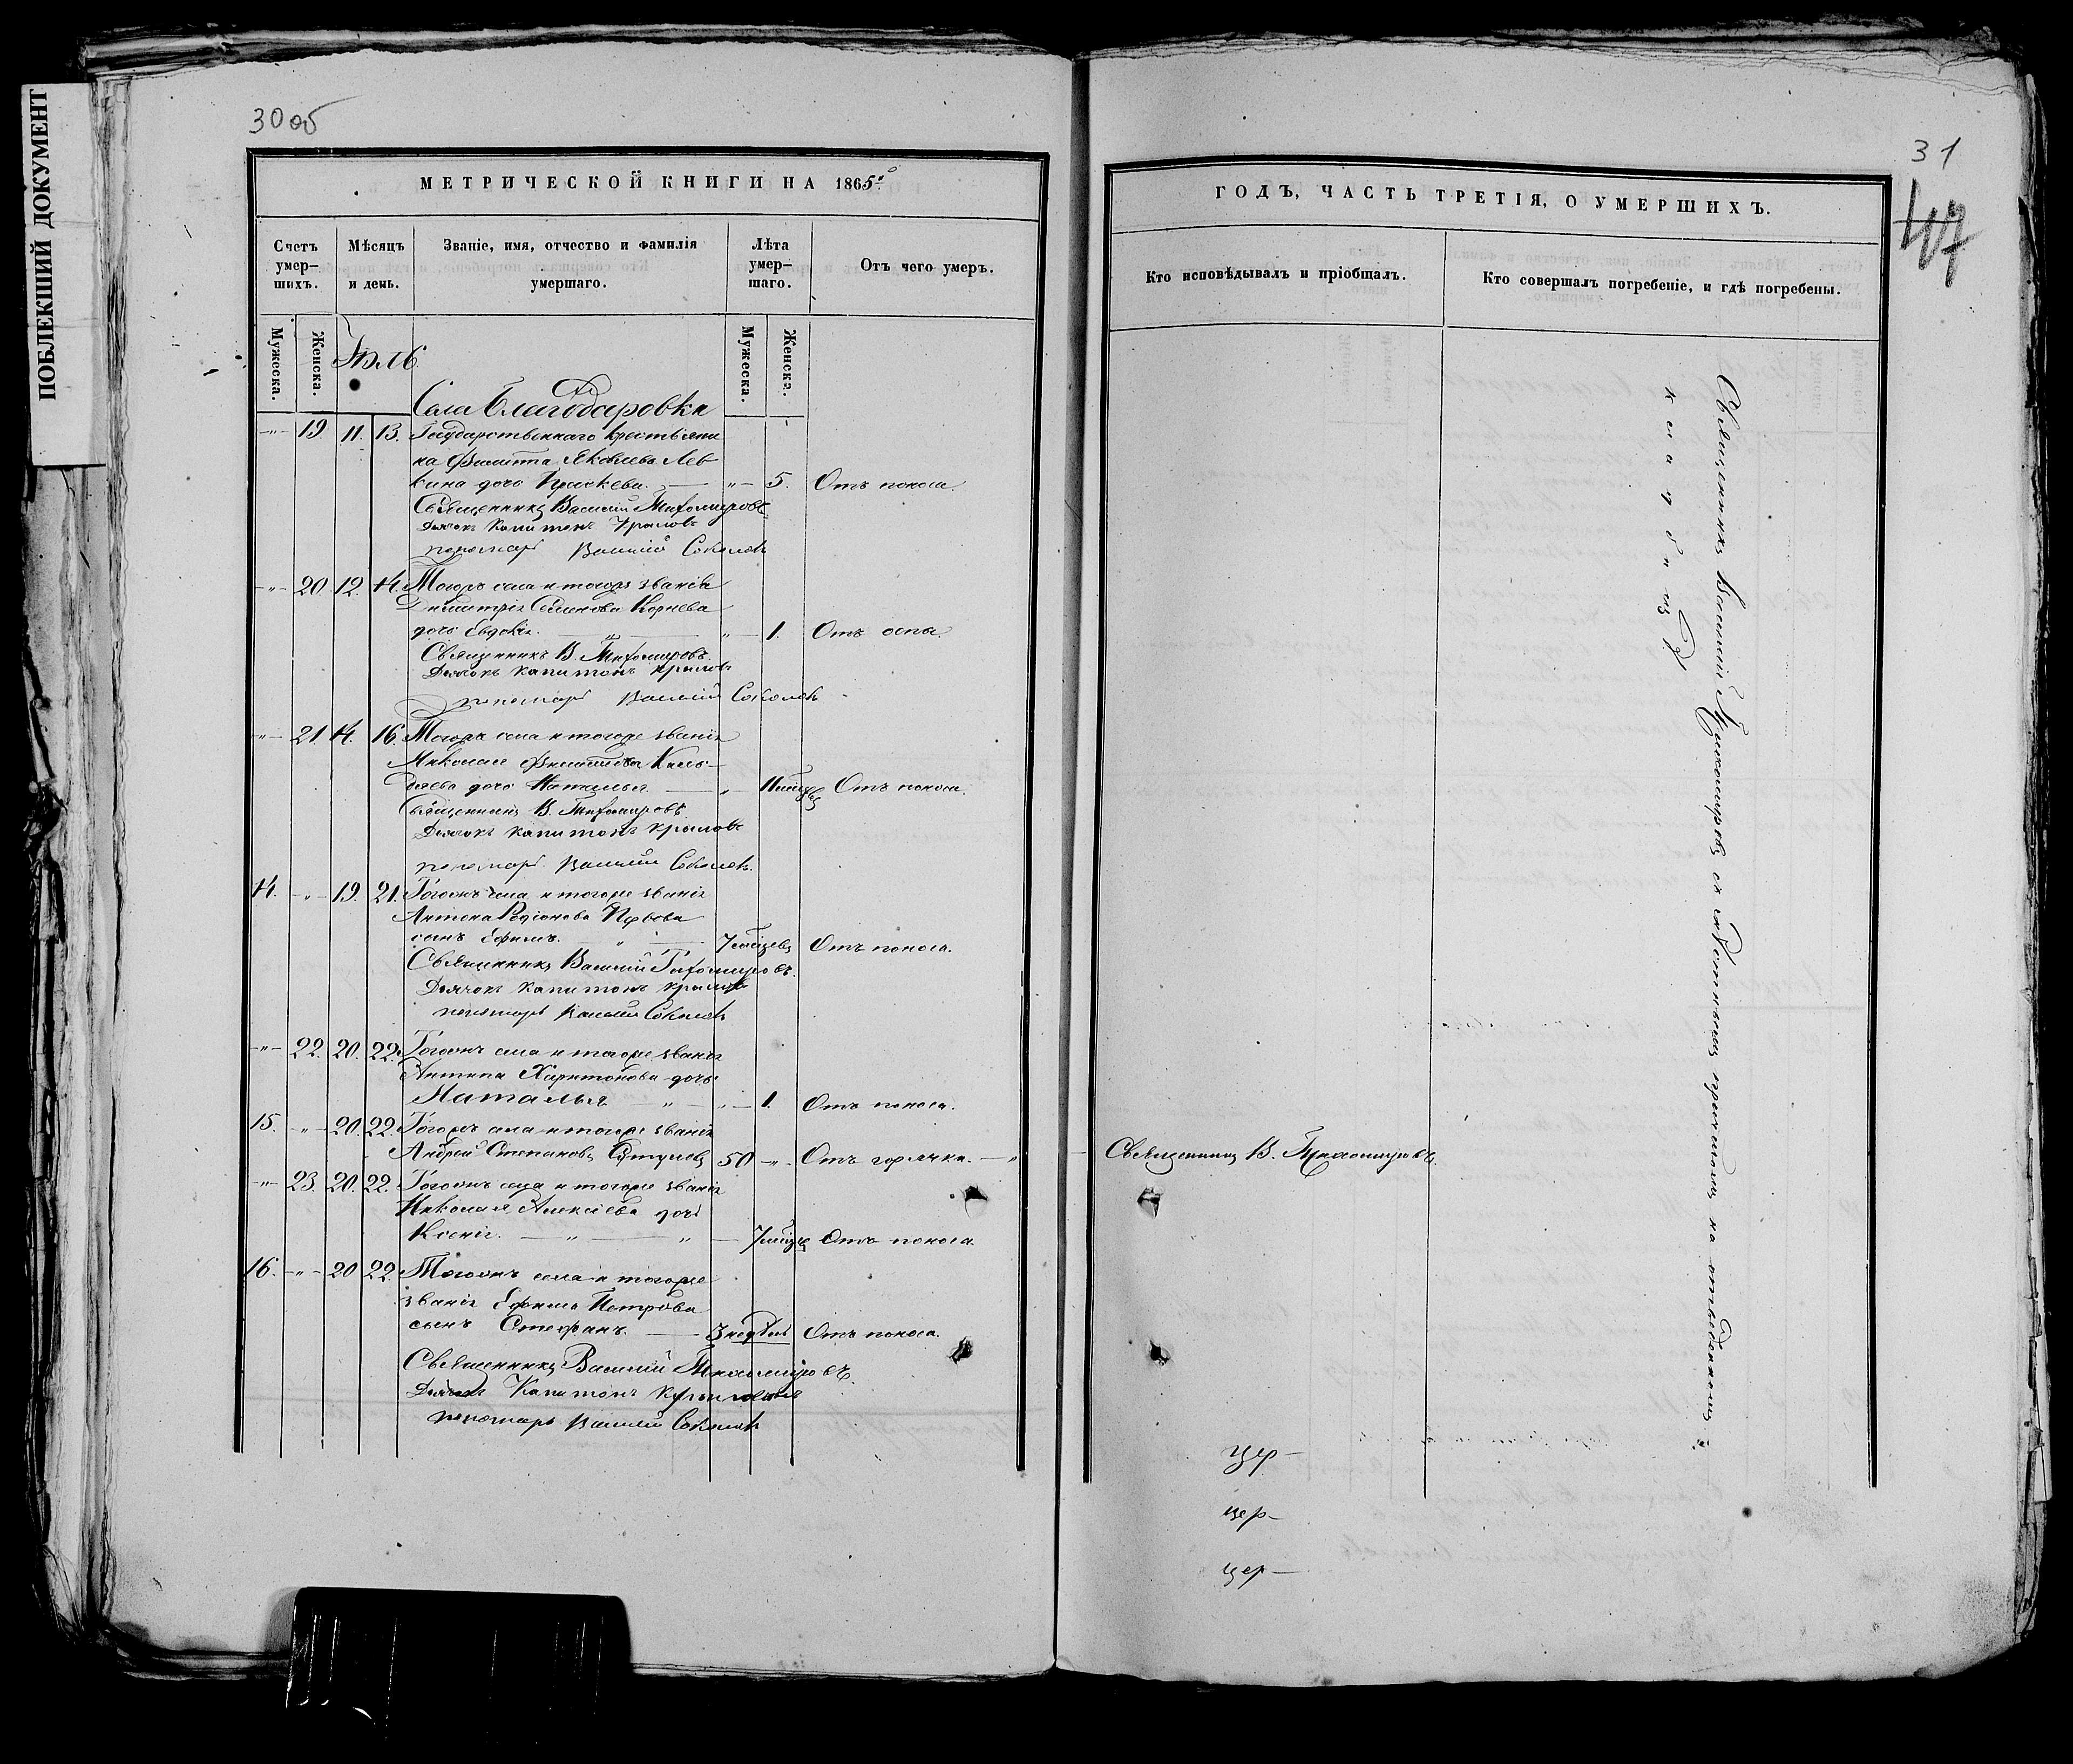 ПОБЛЕКШИЙ ДОКУМЕНТ
30 об
МЕТРИЧЕСКОЙ КНИГИ НА 1865º
Счетъ умер-
шихъ.
Мѣсяцъ
и день.
Званіе, имя, отчество и фамилія
умершаго.
Лѣта
умер-
шаго.
Отъ чего умеръ.
Мужеска.
Женска.
Мужеска.
Женска.
Іюль
Села Благодаровка
-"- 19. 11. 13. Государственнаго крестьяни
на Филиппа Яковлева Лев
кина дочь Праскева. — -"- 5. Отъ поноса.
Священникъ Василий Тихомировъ
Дьячокъ Капитонъ Крыловъ
пономарь Василий Соколовъ
-"- 20. 12. 14. Тогоже села и тогоже званія
Димитрія Семенова Корнева
дочь Евдокія. — " — 1. Отъ оспы.
Священникъ В. Тихомировъ.
Дьячокъ Капитонъ Крыловъ
пономарь Василий Соколовъ
-"- 21. 14. 16. Тогоже села и тогоже званія
Николая Филиппова
дочь Наталья — " 11 мѣсяцевъ Отъ поноса.
Священникъ В. Тихомировъ.
Дьячокъ Капитонъ Крыловъ
пономарь Василий Соколовъ.
14. -"- 19. 21. Тогожъ села и тогоже званія
Антона Родіонова
сынъ Ефимъ. " — 7 мѣсяцевъ Отъ поноса.
Священникъ Василий Тихомировъ.
Дьячокъ Капитонъ Крыловъ
пономарь Василий Соколовъ
-"- 22. 20. 22. Тогожъ села и тогоже званія
Антипа Харитонова дочь
Наталья — " — 1. Отъ поноса.
15. -"- 20. 22. Тогожъ села и тогоже званія
Андрей Степановъ 50 -"- Отъ горячки. — "
-"- 23. 20. 22. Тогожъ села и тогоже званія
Николая Алексѣева дочь
Ксенія. — " — " — 7 мѣсяц Отъ поноса.
16. -"- 20 22. Тогожъ села и тогоже
званія Ефима Петрова
сынъ Стефанъ. — 3 недѣль Отъ поноса.
Священникъ Василий Тихомировъ.
Дьячокъ Капитонъ Крыловъ
пономарь Василий Соколовъ
31
47
ГОДЪ, ЧАСТЬ ТРЕТІЯ, О УМЕРШИХЪ.
Кто исповѣдывалъ и пріобщалъ.
Кто совершалъ погребеніе, и гдѣ погребены.
Священникъ Василий Тихомировъ съ причтомъ на отведенномъ
кладбищѣ.
Священникъ В. Тихомировъ.
цер-
цер-
цер-